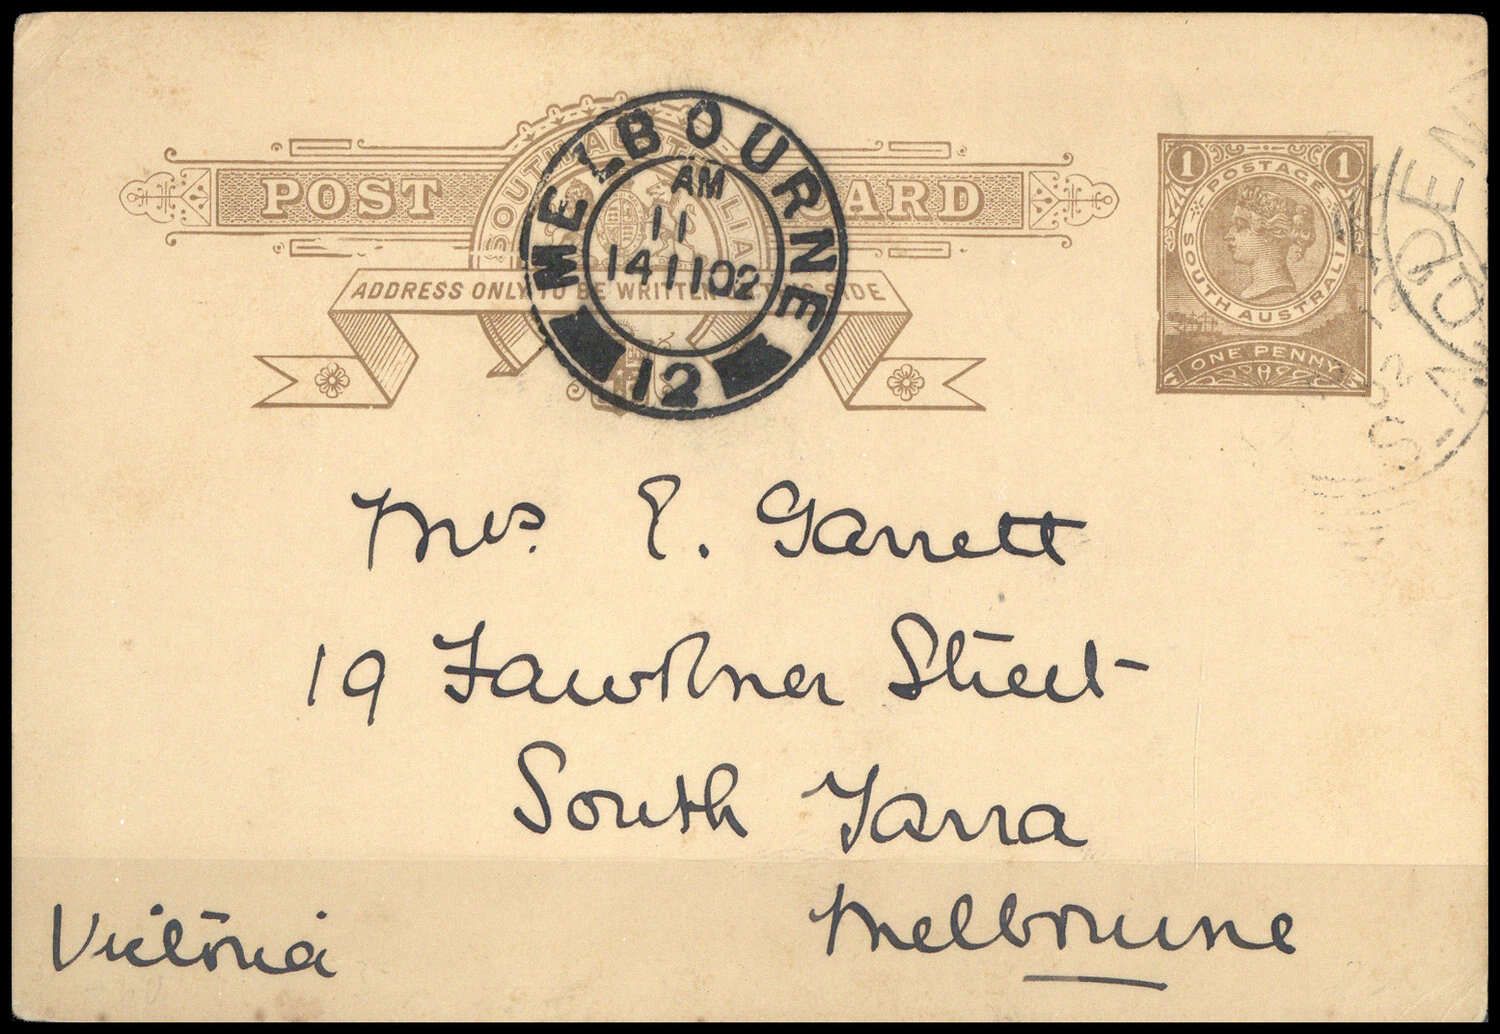 POST CARD
SOUTH AUSTRALIA
ADDRESS ONLY TO BE WRITTEN SIDE
MELBOURNE
AM
11
14 11 02
12
1 1
POSTAGE
SOUTH AUSTRALIA
ONE PENNY
S.A.
02
Mrs. E. Garrett
19 Fawkner Street
South Yarra
Melbourne
Victoria